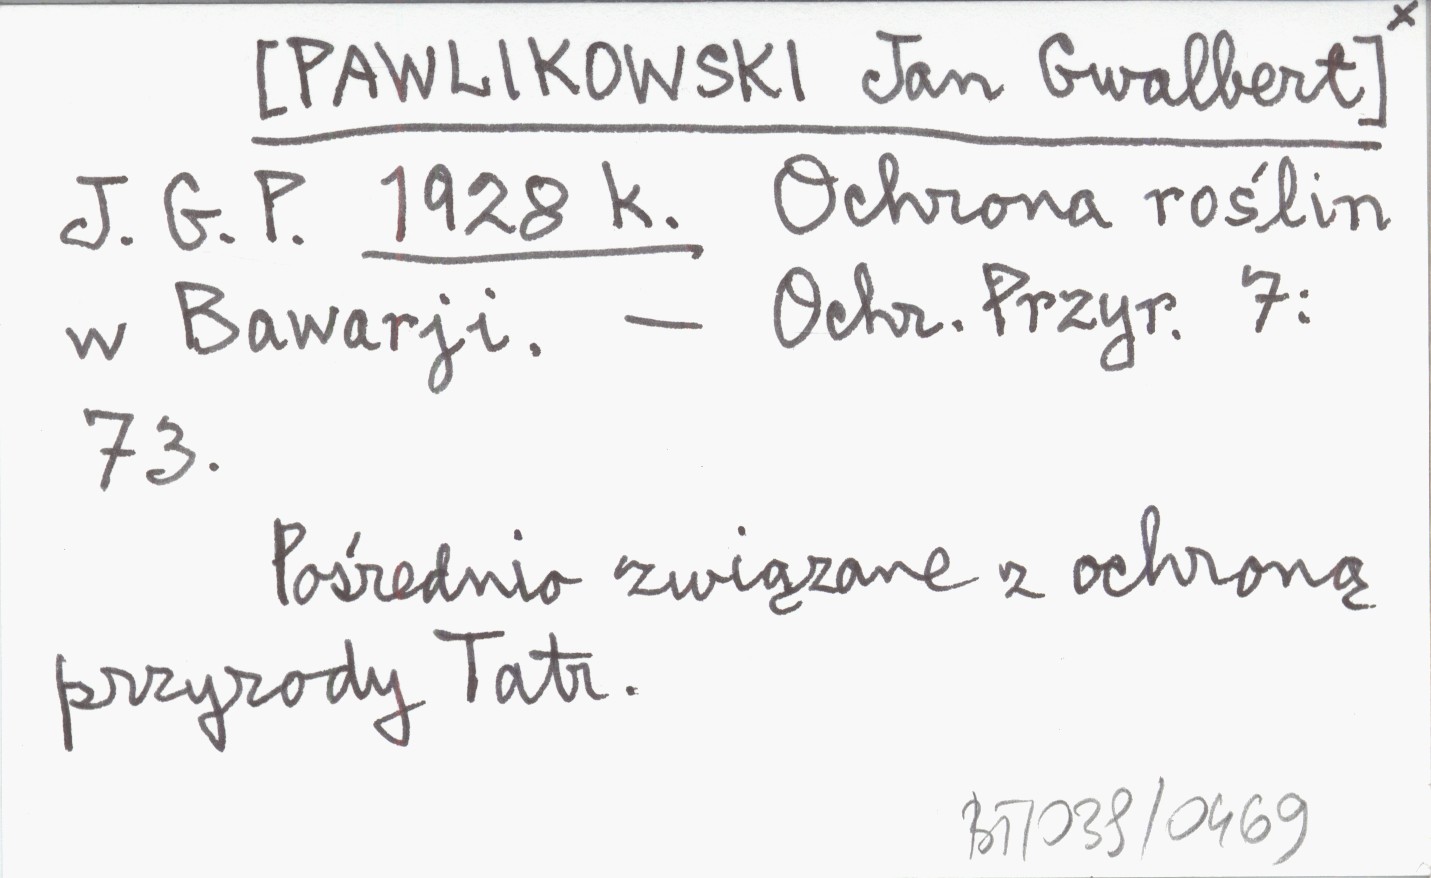 [PAWLIKOWSKI Jan Gwalbert]x
J. G. P. 1928 k. Ochrona roślin
w Bawarji. — Ochr. Przyr. 7:
73.
Pośrednio związane z ochroną
przyrody Tatr.
BT/039/0469